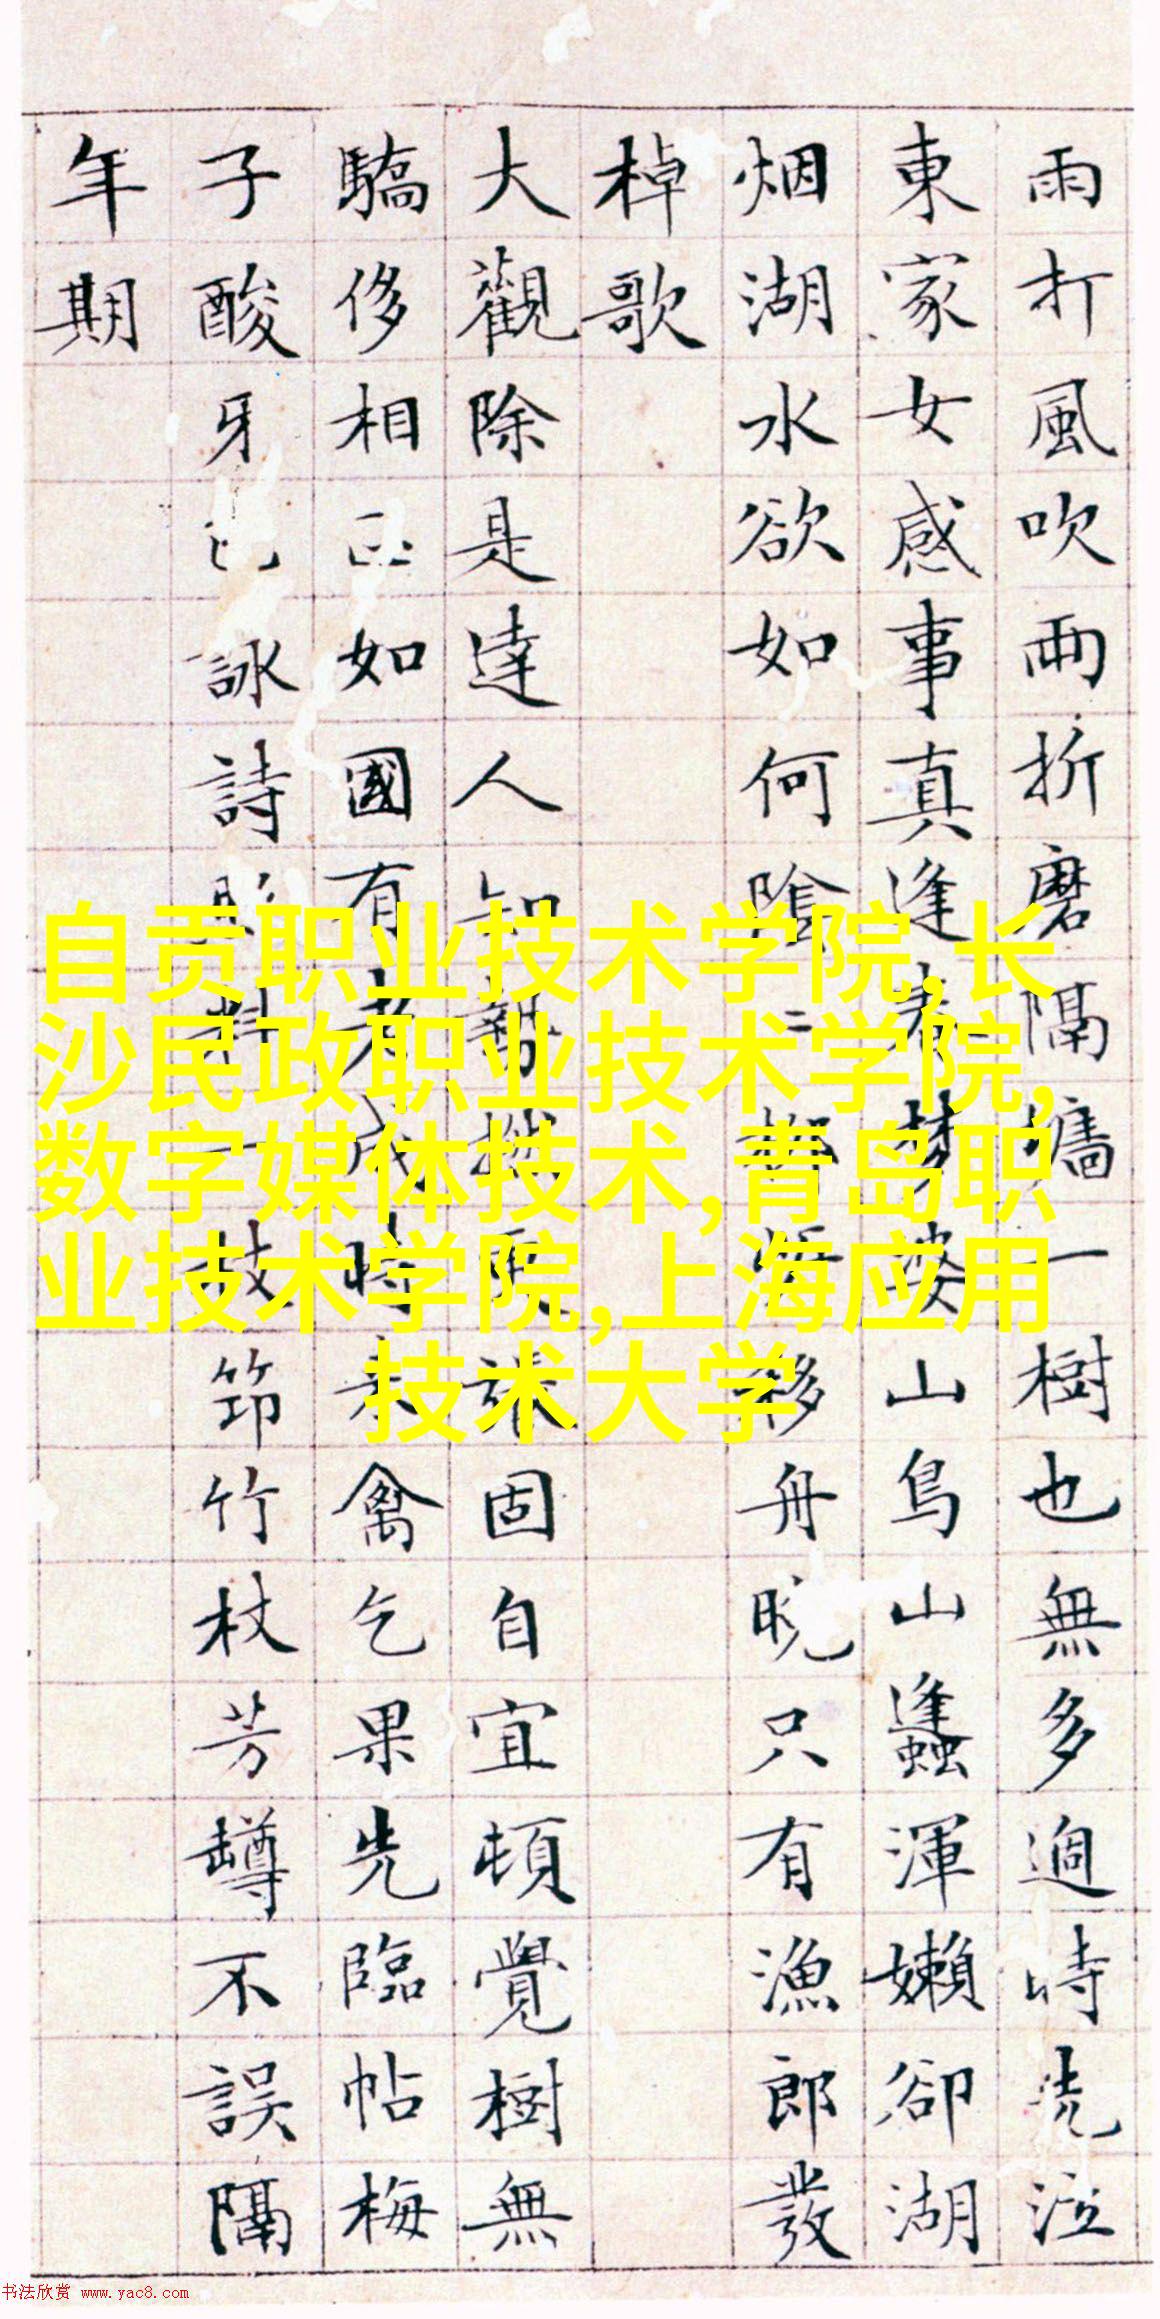 雨打風吹雨折磨隔墻一樹也無多過時洗泣
東家女感事真逢春夢婆山鳥山蠭渾嬾卻湖
烟湖水欲如何陰二移舟晚只有漁郎發
棹歌
大觀除是達人知固自宜頓覺樹無
驕侈相如國有老成時來禽乞果先臨帖梅
子酸牙詠詩料一枝筇竹杖芳罇不誤隔
年期
自贡职业技术学院,长
沙民政职业技术学院,
数字媒体技术,青岛职
业技术学院,上海应用
技术大学
书法欣赏 www.yac8.com